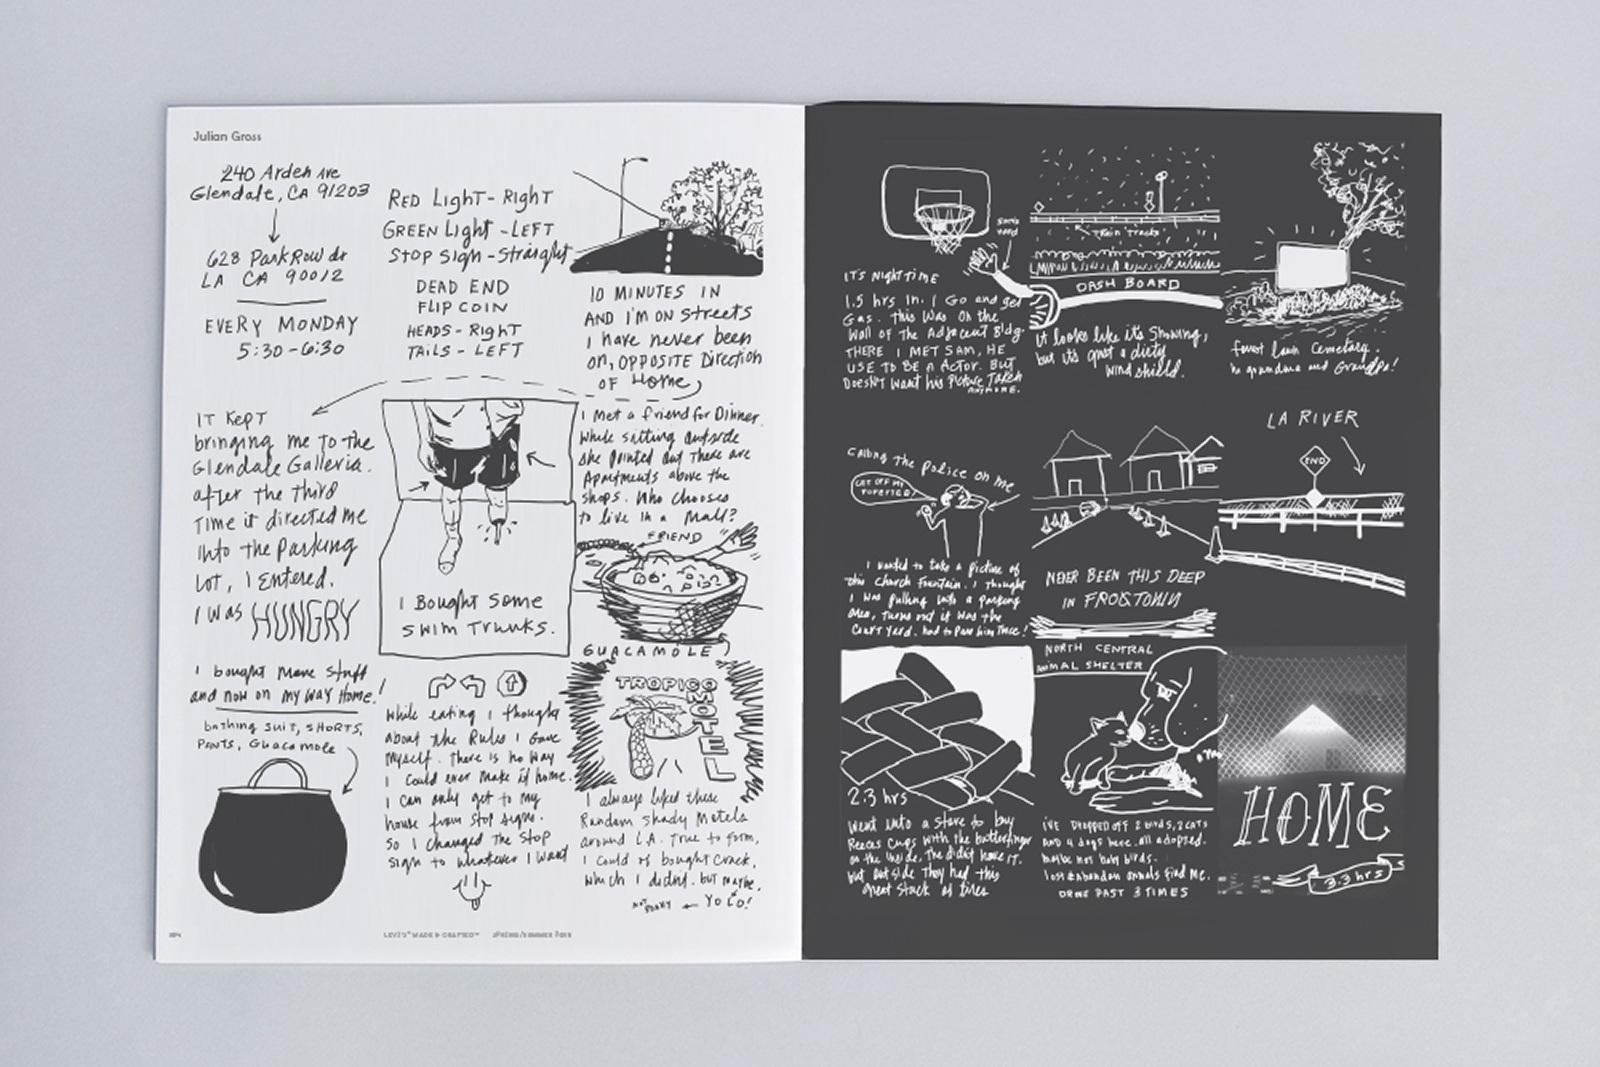 Julian Gross
240 Arden Ave
Glendale, CA 91203
628 Park Row dr
LA CA 90012
EVERY MONDAY
5:30-6:30
RED Light-Right
GREEN Light-LEFT
STOP Sign-Straight
DEAD END
FLIP COIN
HEADS-Right
TAILS-LEFT
10 MINUTES IN
AND I'M ON Streets
I have never been
on, OPPOSITE Direction
OF Home
IT KEPT
bringing me to the
Glendale Galleria.
after the third
time it directed me
into the Parking
Lot, I Entered.
I was HUNGRY
I Bought Some
Swim Trunks.
I met a friend for Dinner.
While sitting outside
she pointed out there are
Apartments above the
shops. Who chooses
to live in a Mall?
FRIEND
GUACAMOLE
I bought more stuff
and now on my way Home!
bathing suit, SHORTS,
PANTS, Guacamole
While eating I thought
about the Rules I Gave
Myself. There is no way
I could ever make it home.
I can only get to my
house from stop signs.
So I changed the Stop
sign to whatever I want
TROPICO
MOTEL
I always liked these
Random shady Motels
around L.A. True to form,
I could of bought Crack,
which I didnt. but maybe.
NOT SORRY YOLO!
LEVI'S® MADE & CRAFTED™
IT'S NIGHTTIME
1.5 hrs in. I Go and get
Gas. This was on the
Wall of the Adjacent Bldg.
THERE I MET SAM, HE
USE TO BE A ACTOR. But
DOESN'T Want his Picture Taken
ANYMORE.
Sam's
hand
Train Tracks
DASH BOARD
It looks like it's snowing,
but it's just a dirty
windshield.
forest lawn Cemetary.
hi grandma and Grandpa!
Calling The Police on me
GET OFF MY
PROPERTY!
I wanted to take a picture of
this Church Fountain. I thought
I was pulling into a parking
area, turns out it was the
Court yard. had to pass him twice!
NEVER BEEN THIS DEEP
IN FROGTOWN
LA RIVER
END
2:3 hrs
Went into a store to buy
Reeces Cups with the butterfinger
on the inside. The didnt have it.
but outside They had this
great stack of tires
NORTH CENTRAL
ANIMAL SHELTER
I'VE DROPPED OFF 2 birds, 2 cats
AND 4 dogs here. all adopted.
maybe not baby birds.
lost & abandon animals find me.
DROVE PAST 3 TIMES
HOME
3.3 hrs